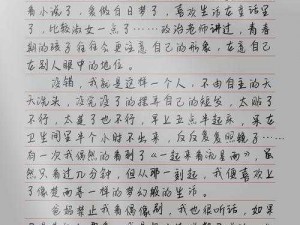 看小说了，爱做白日梦了，喜欢生活在童话子
了。比较淑女一点了⋯⋯政治老师讲过，青春
期的孩子往往会更注重自己的形象，在意自己
在别人眼中的地位。
没错，我就是这样一个人，不由自主的天
天洗头，没完没了的摆弄自己的短发，太贴了
不行，太道了也不行，早上五点半起床，呆在
卫生间里半个小时不出来，反反复复照镜子⋯⋯
有一次我偶然的看到了《一起来看流星雨》，虽
然只看过几分钟，但从那一刻起，我便喜欢上
了像楚雨荨一样的梦幻般的生活。
爸妈禁止我看偶像剧，我也很听话，如果